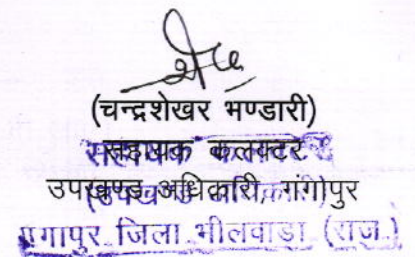 (चन्द्रशेखर भण्डारी)
सहायक कलक्टर
उपखण्ड अधिकारी, गंगापुर
गंगापुर जिला भीलवाडा (राज.)